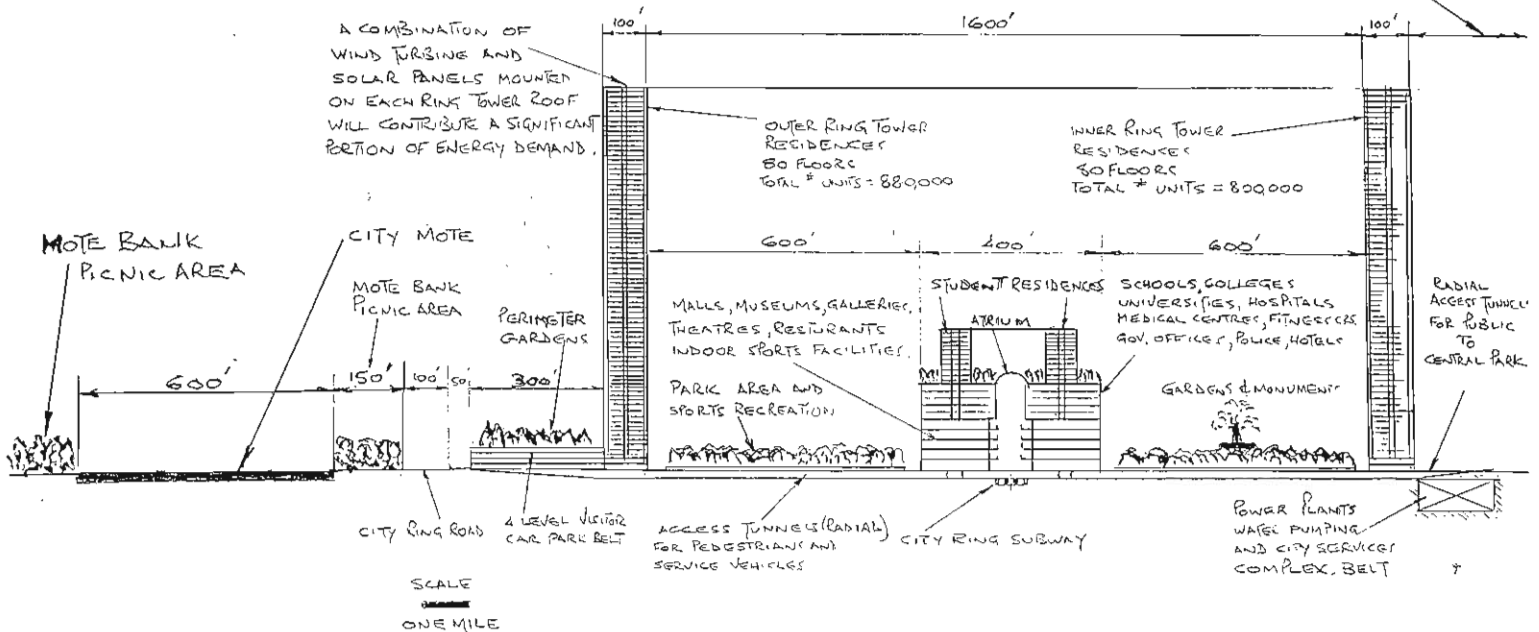 100'
1600'
100'
A COMBINATION OF
WIND TURBINE AND
SOLAR PANELS MOUNTED
ON EACH RING TOWER ROOF
WILL CONTRIBUTE A SIGNIFICANT
PORTION OF ENERGY DEMAND.
OUTER RING TOWER
RESIDENCES
80 FLOORS
TOTAL # UNITS = 880,000
INNER RING TOWER
RESIDENCES
80 FLOORS
TOTAL # UNITS = 800,000
MOTE BANK
PICNIC AREA
CITY MOTE
MOTE BANK
PICNIC AREA
PERIMETER
GARDENS
600'
150'
100'
50'
300'
600'
400'
600'
MALLS, MUSEUMS, GALLERIES,
THEATRES, RESTURANTS
INDOOR SPORTS FACILITIES.
PARK AREA AND
SPORTS RECREATION
STUDENT RESIDENCES
ATRIUM
SCHOOLS, COLLEGES
UNIVERSITIES, HOSPITALS
MEDICAL CENTRES, FITNESS CRS
GOV. OFFICES, POLICE, HOTELS
GARDENS & MONUMENTS
RADIAL
ACCESS TUNNELS
FOR PUBLIC
TO
CENTRAL PARK
CITY RING ROAD
4 LEVEL VISITOR
CAR PARK BELT
ACCESS TUNNELS (RADIAL)
FOR PEDESTRIANS AND
SERVICE VEHICLES
CITY RING SUBWAY
POWER PLANTS
WATER PUMPING
AND CITY SERVICES
COMPLEX. BELT
SCALE
ONE MILE